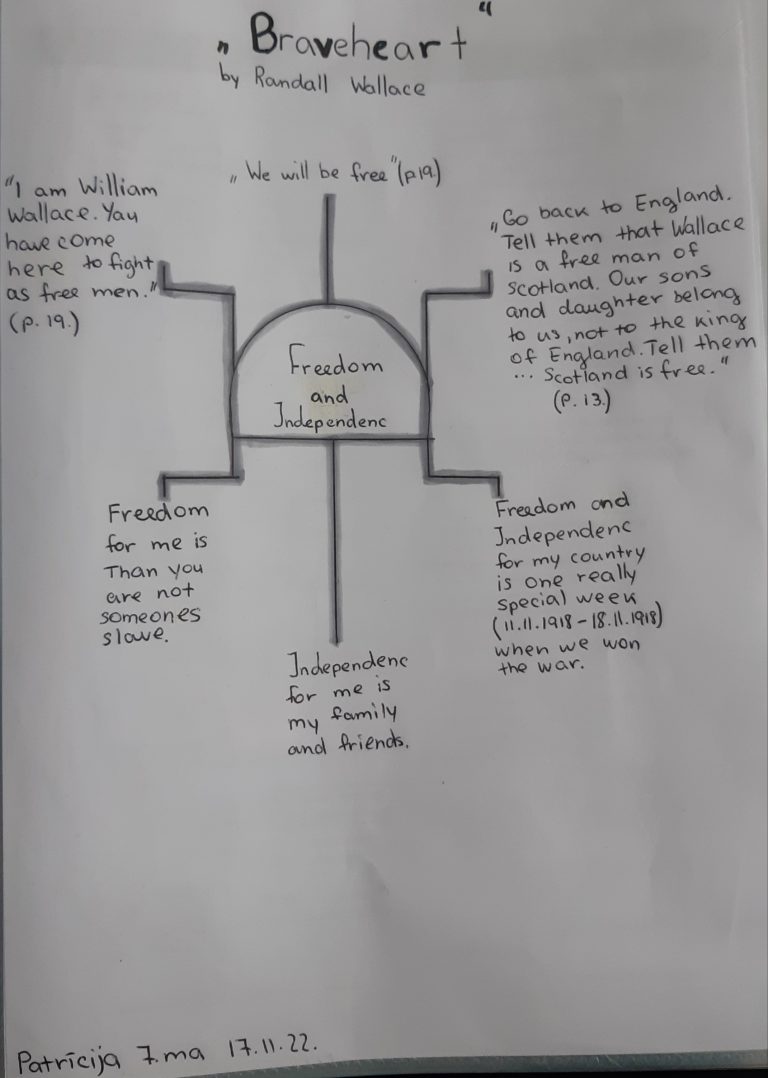 „Braveheart“
by Randall Wallace
"I am William
Wallace. You
have come
here to fight
as free men."
(p. 19.)
„We will be free"(p19.)
„Go back to England.
Tell them that Wallace
is a free man of
Scotland. Our sons
and daughter belong
to us, not to the king
of England. Tell them
... Scotland is free."
(P. 13.)
Freedom
and
Independenc
Freedom
for me is
Than you
are not
someones
slave.
Independenc
for me is
my family
and friends.
Freedom and
Independenc
for my country
is one really
special week
(11.11.1918 - 18.11.1918)
when we won
the war.
Patrīcija 7.ma 17.11.22.